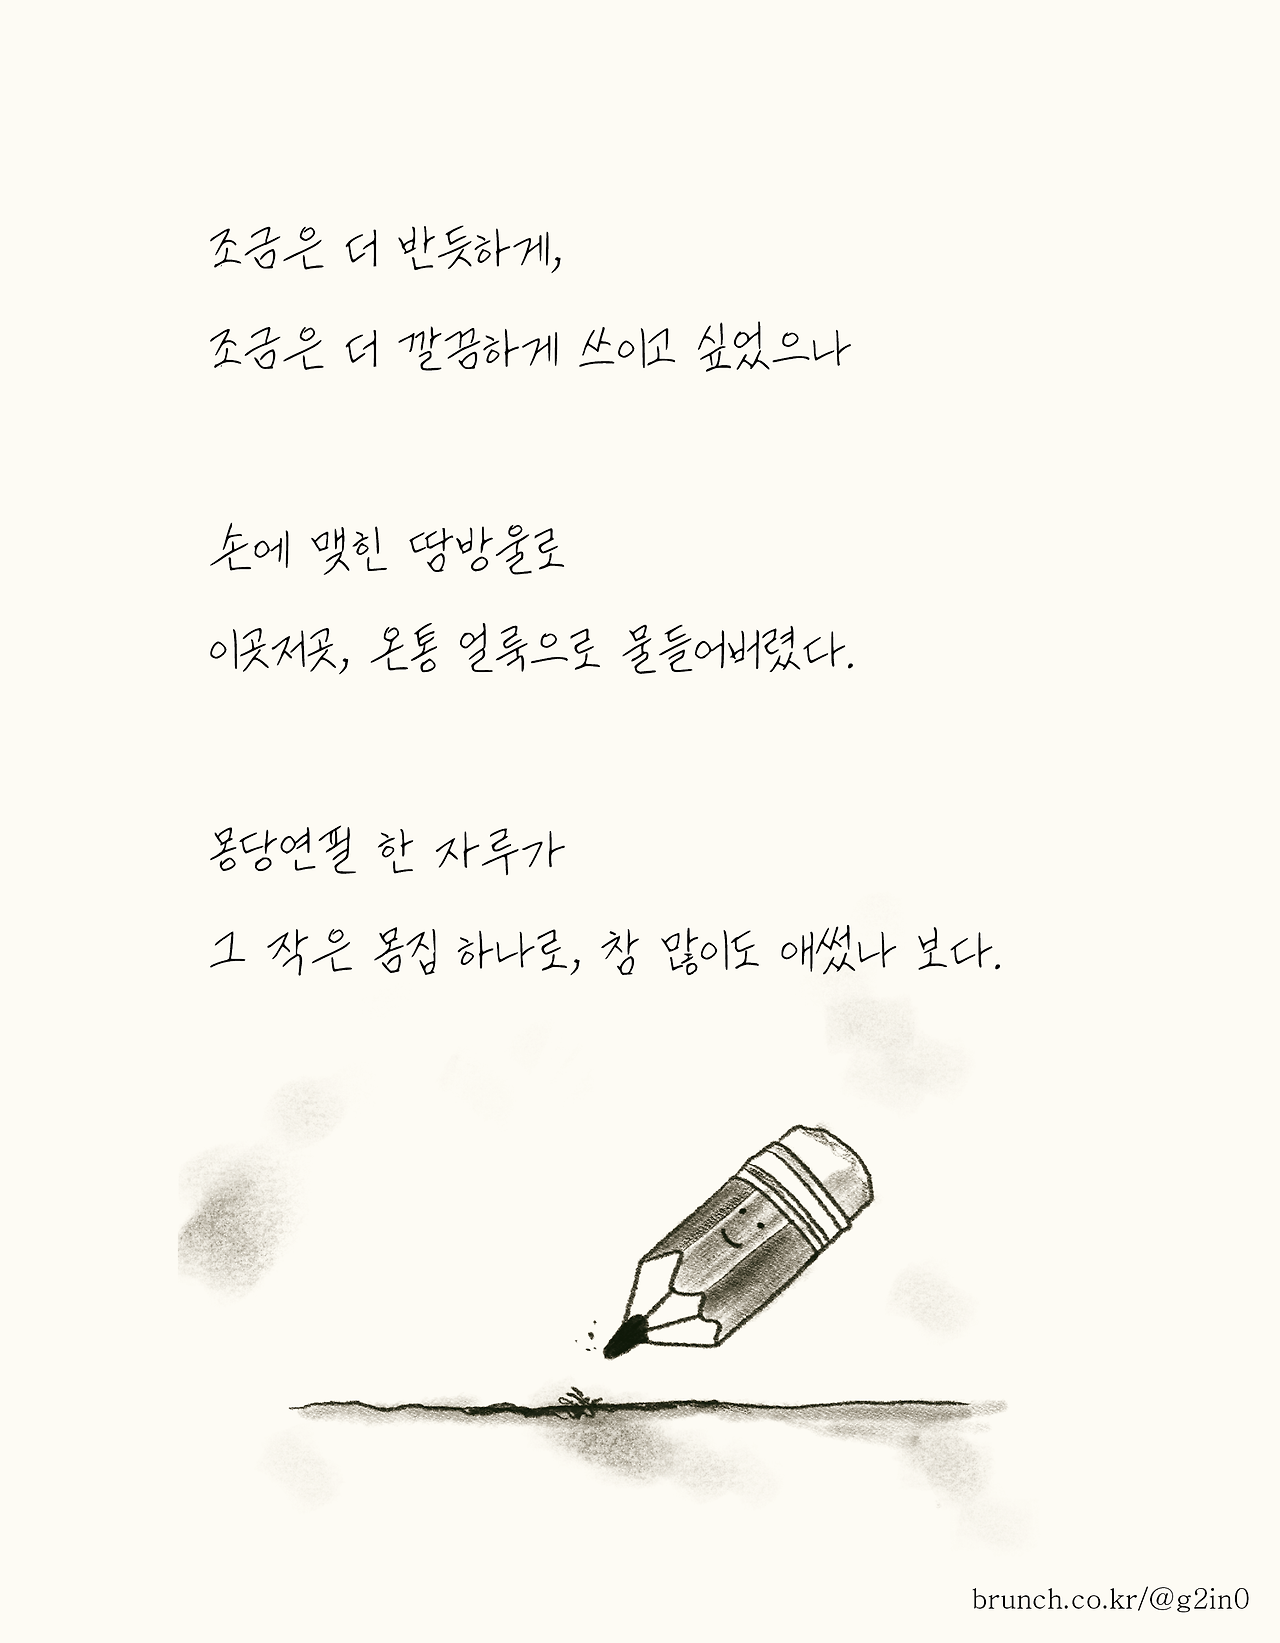 조금은 더 반듯하게,
조금은 더 깔끔하게 쓰이고 싶었으나
손에 맺힌 땀방울로
이곳저곳, 온통 얼룩으로 물들어버렸다.
몽당연필 한 자루가
그 작은 몸집 하나로, 참 많이도 애썼나 보다.
brunch.co.kr/@g2in0